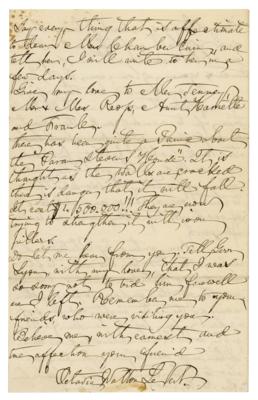 Say every thing that is affectionate
to dear Mrs Chamberlain, and
tell her, I will write to her in a
few days.
Give my love to Mr Tenney
Mr & Mrs Ross, & Aunt Harriette
and Frank.
There has been quite a Panic about
the Paran Stevens "House". It is
thought as the Walls are
there is danger that it will fall.
It cost $1,500.000!!! They are now
trying to strengthen it with iron
Do let me hear from you. Tell
Lyon with my love, that I was
so sorry not to bid him farewell
ere I left. Remember me to your
friends, who were visiting you.
Believe me, with earnest and
true affection your friend
Octavia Walton Le Vert.